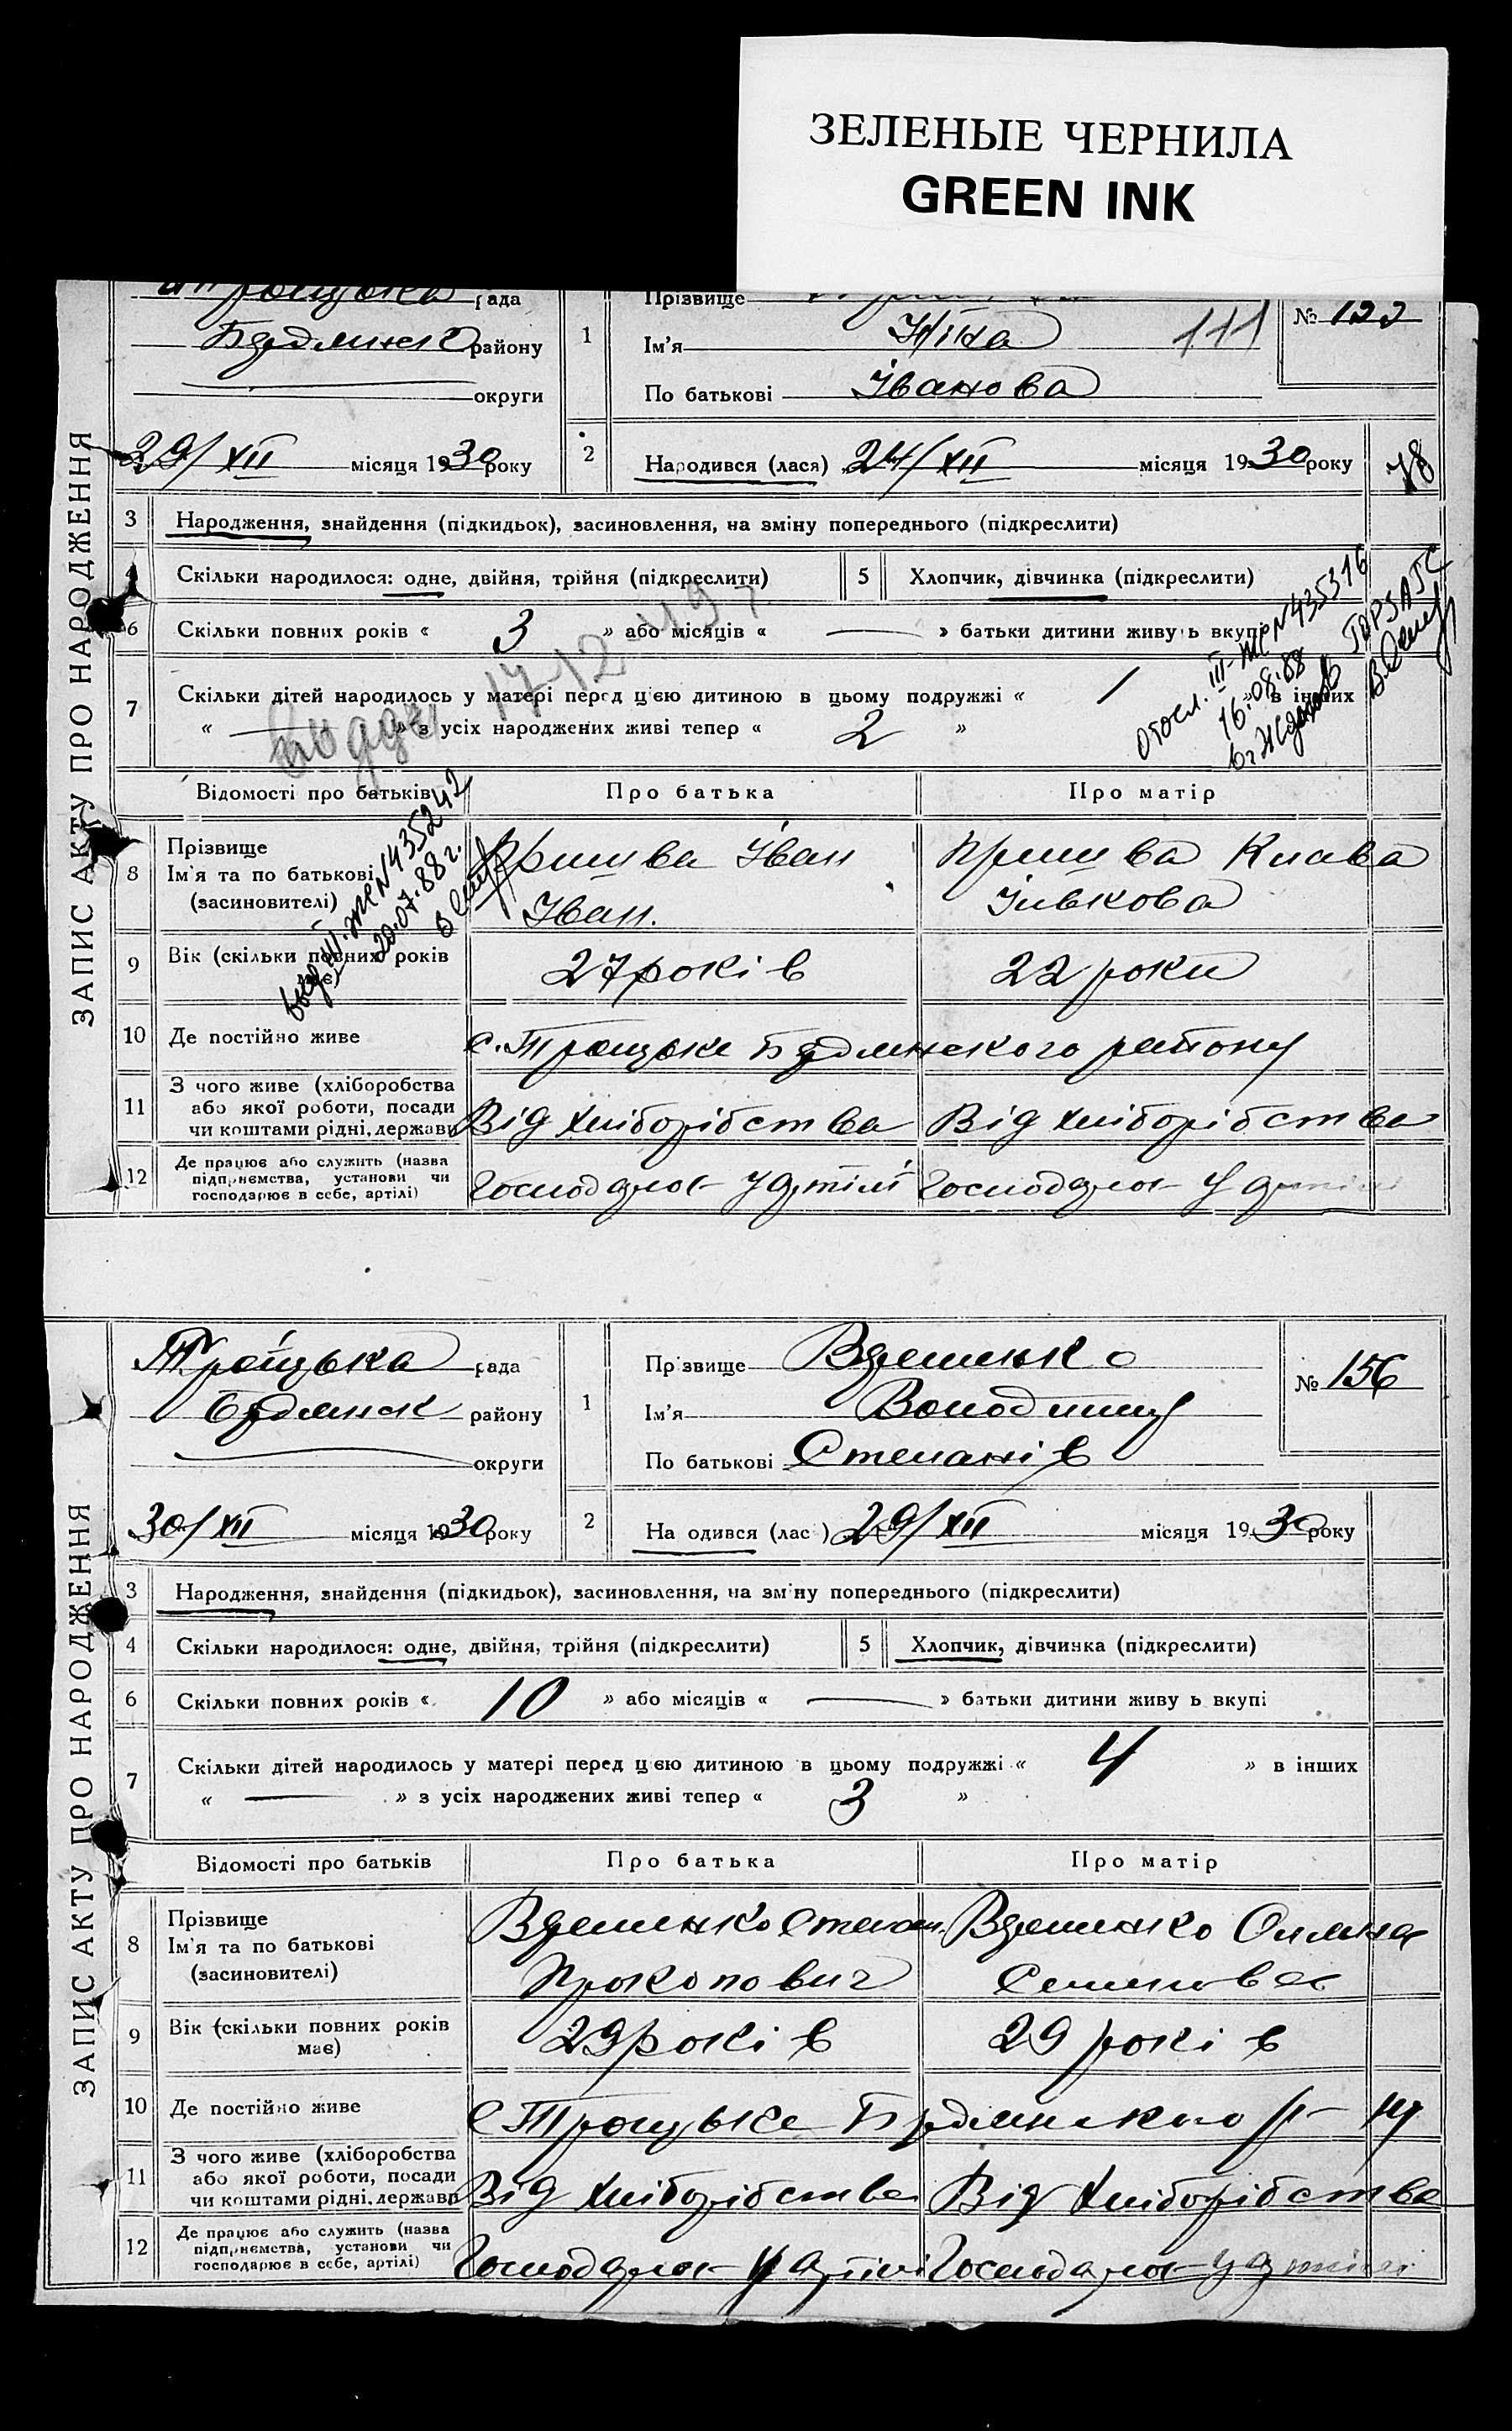 ЗЕЛЕНЫЕ ЧЕРНИЛА
GREEN INK
ЗАПИС АКТУ ПРО НАРОДЖЕННЯ
рада
району
округи
29/XII місяця 1930 року
1
Прізвище
Ім'я Ніна
По батькові Іванова
111
№
2 Народився (лася) 24/XII місяця 1930 року
78
3 Народження, знайдення (підкидьок), засиновлення, на зміну попереднього (підкреслити)
4 Скільки народилося: одне, двійня, трійня (підкреслити) 5 Хлопчик, дівчинка (підкреслити)
6 Скільки повних років « 3 » або місяців « — » батьки дитини живуть вкупі
7 Скільки дітей народилось у матері перед цією дитиною в цьому подружжі « 1 » в інших
« — » з усіх народжених живі тепер « 2 »
отосл. III-ЖС №435316
16.08.88
III-ЖС №435242
20.07.88 г.
Відомості про батьків Про батька Про матір
8 Прізвище
Ім'я та по батькові
(засиновителі)
Іван
Іван.
Клава
9 Вік (скільки повних років має) 27 років 22 роки
10 Де постійно живе с. Троцьке району
11 З чого живе (хліборобства
або якої роботи, посади
чи коштами рідні, держави)
Від хліборібства Від хліборібства
12 Де працює або служить (назва
підприємства, установи чи
господарює в себе, артілі)
Господарює у артілі Господарює у артілі
ЗАПИС АКТУ ПРО НАРОДЖЕННЯ
Троїцька рада
району
округи
30/XII місяця 1930 року
1
Прізвище Вдешенько
Ім'я Володимир
По батькові Степанів
№ 156
2 Народився (лася) 29/XII місяця 1930 року
3 Народження, знайдення (підкидьок), засиновлення, на зміну попереднього (підкреслити)
4 Скільки народилося: одне, двійня, трійня (підкреслити) 5 Хлопчик, дівчинка (підкреслити)
6 Скільки повних років « 10 » або місяців « — » батьки дитини живуть вкупі
7 Скільки дітей народилось у матері перед цією дитиною в цьому подружжі « 4 » в інших
« — » з усіх народжених живі тепер « 3 »
Відомості про батьків Про батька Про матір
8 Прізвище
Ім'я та по батькові
(засиновителі)
Степан
Прокопович
9 Вік (скільки повних років
має)
29 років 29 років
10 Де постійно живе с Троцьке р-ну
11 З чого живе (хліборобства
або якої роботи, посади
чи коштами рідні, держави)
Від хліборібства Від хліборібства
12 Де працює або служить (назва
підприємства, установи чи
господарює в себе, артілі)
Господарює у артілі Господарює у артілі